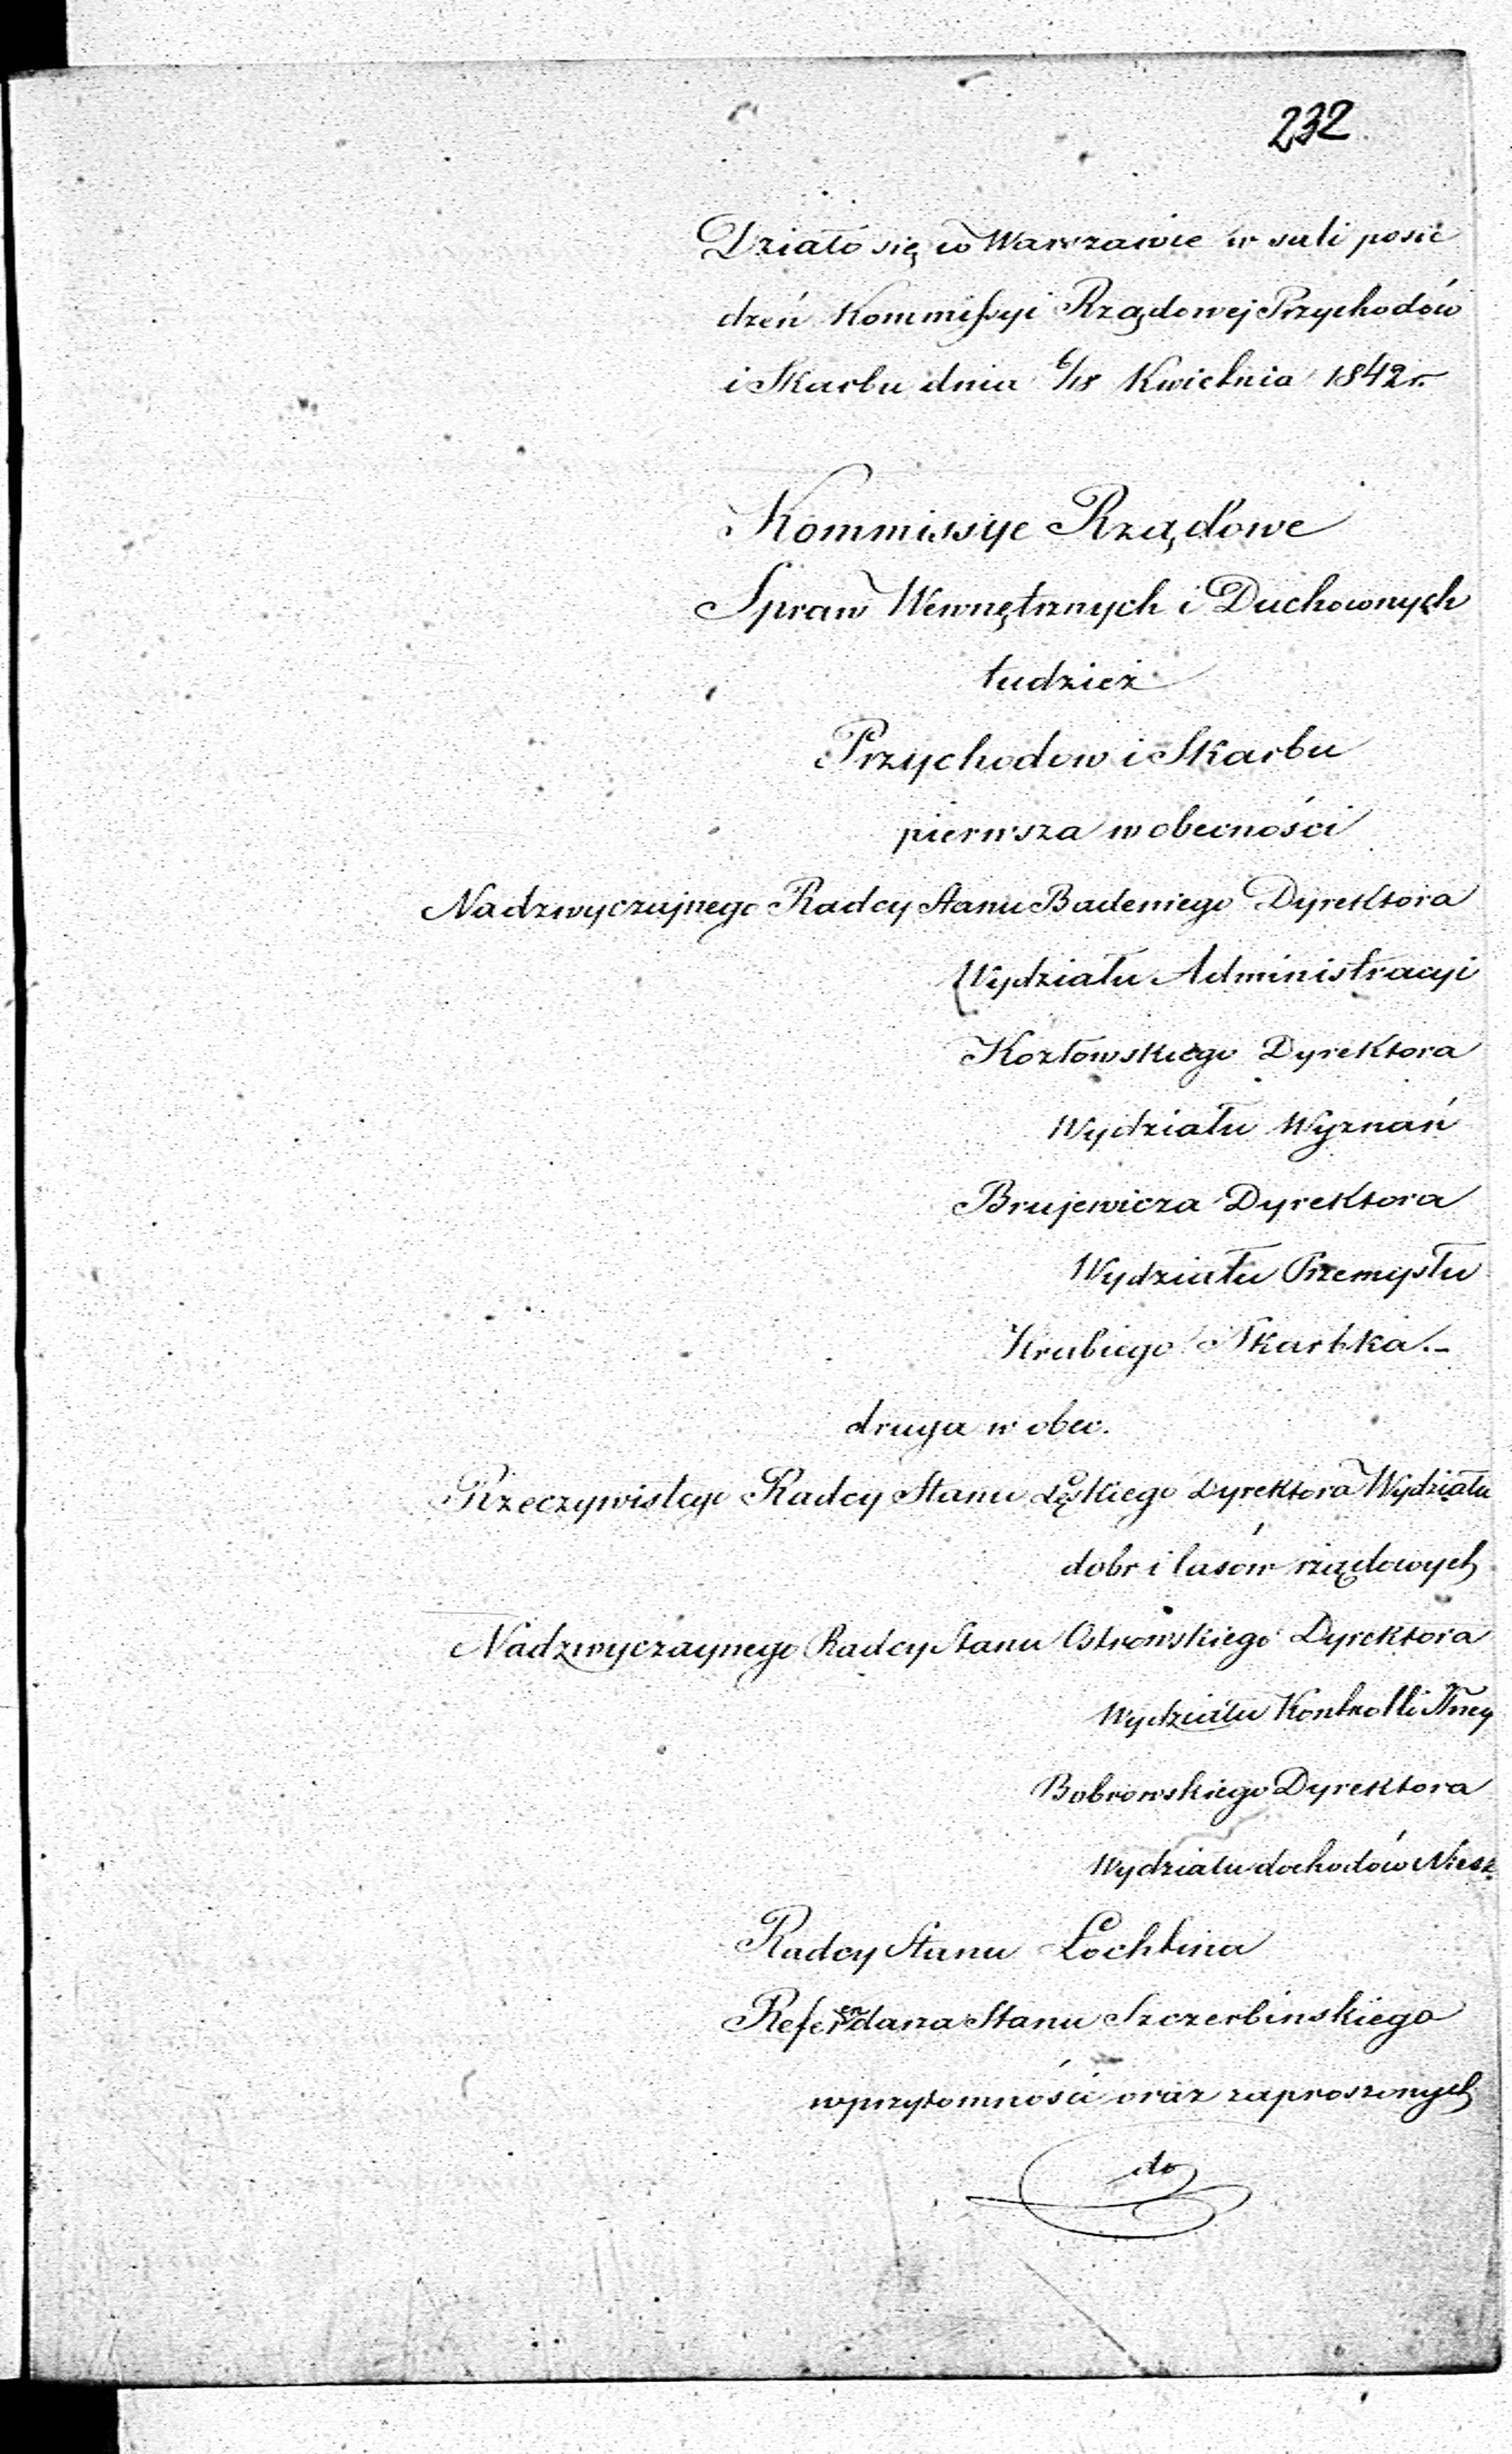 232
Działo się w Warszawie w sali posie
dzeń Kommissyi Rządowej Przychodów
i Skarbu dnia 6/18 Kwietnia 1842 r.
Kommissye Rządowe
Spraw Wewnętrznych i Duchownych
tudzież
Przychodow i Skarbu
pierwsza w obecności
Nadzwyczajnego Radcy Stanu Badeniego Dyrektora
Wydziału Administracyi
Kozłowskiego Dyrektora
Wydziału Wyznań
Brujewicza Dyrektora
Wydziału Przemysłu
Hrabiego Skarbka.-
druga w obec.
Rzeczywistego Radcy Stanu Łęskiego Dyrektora Wydziału
dobr i lasów rządowych
Nadzwyczaynego Radcy Stanu Ostrowskiego Dyrektora
Wydziału Kontrolli
Bobrowskiego Dyrektora
Wydziału dochodów Niest.
Radcy Stanu Lochtina
Referendarza Stanu Szczerbińskiego
w przytomności oraz zaproszonych
do